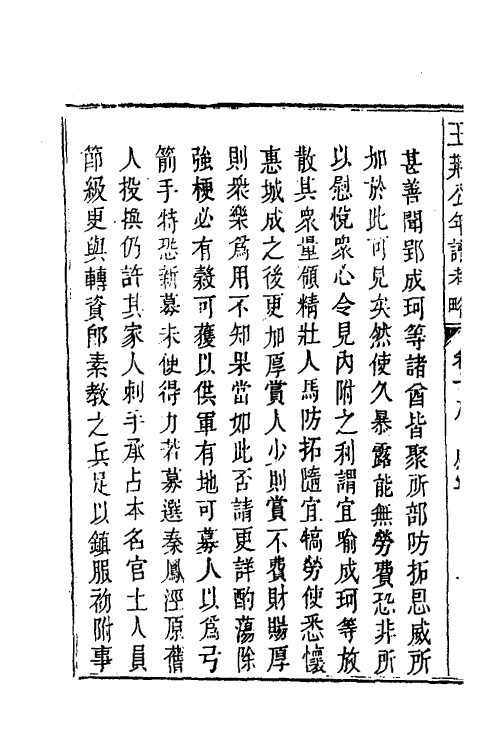 王荆公年譜考略
甚善聞郢成珂等諸酋皆聚所部防拓恩威所
加於此可見矣然使久暴露能無勞費恐非所
以慰悅衆心令見內附之利謂宜喻成珂等放
散其衆量領精壯人馬防拓隨宜犒勞使悉懷
惠城成之後更加厚賞人少則賞不費財賜厚
則衆樂爲用不知果當如此否請更詳酌蕩除
強梗必有穀可獲以供軍有地可募人以爲弓
箭手特恐新募未便得力若募選秦鳳涇原舊
人投換仍許其家人刺手承占本名官土人員
節級更與轉資郎素教之兵足以鎮服初附事